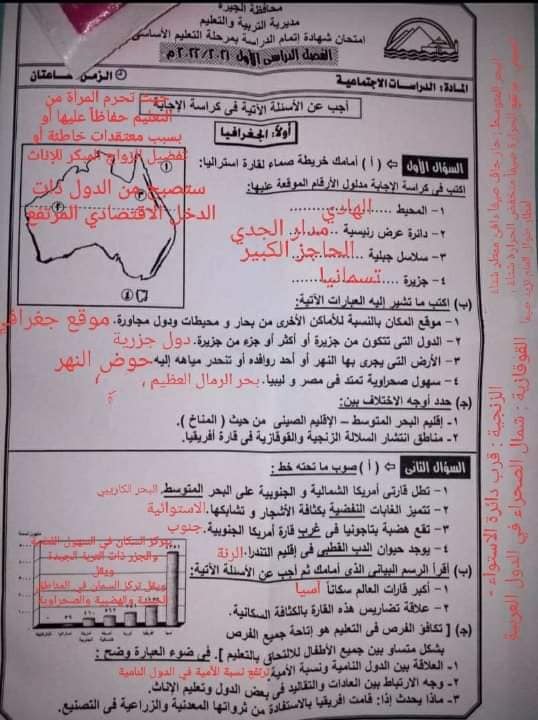 محافظة الجيزة
مديرية التربية والتعليم
امتحان شهادة إتمام الدراسة بمرحلة التعليم الأساسى
الفصل الدراسى الأول ٢٠٢٢/٢٠٢١م
المادة: الدراسات الاجتماعية
الزمن: ساعتان
أجب عن الأسئلة الآتية فى كراسة الإجابة
أولًا: الجغرافيا
حيث تحرم المرأة من
التعليم حفاظاً عليها أو
بسبب معتقدات خاطئة أو
تفضيل الزواج المبكر للإناث
ستصبح من الدول ذات
الدخل الاقتصادي المرتفع
السؤال الأول (أ) أمامك خريطة صماء لقارة استراليا:
اكتب فى كراسة الإجابة مدلول الأرقام الموقعة عليها:
١- المحيط ........ الهادي
٢- دائرة عرض رئيسية .... مدار الجدي
٣- سلاسل جبلية .... الحاجز الكبير
٤- جزيرة .... تسمانيا
(ب) اكتب ما تشير إليه العبارات الآتية:
١- موقع المكان بالنسبة للأماكن الأخرى من بحار و محيطات ودول مجاورة. موقع جغرافي
٢- الدول التى تتكون من جزيرة أو أكثر أو جزء من جزيرة. دول جزرية
٣- الأرض التى يجرى بها النهر أو أحد روافده أو تنحدر مياهه إليه حوض النهر
٤- سهول صحراوية تمتد فى مصر و ليبيا. بحر الرمال العظيم
(ج) حدد أوجه الاختلاف بين:
١- إقليم البحر المتوسط – الإقليم الصينى من حيث (المناخ).
٢- مناطق انتشار السلالة الزنجية والقوقازية فى قارة أفريقيا.
السؤال الثانى (أ) صوب ما تحته خط:
١- تطل قارتى أمريكا الشمالية و الجنوبية على البحر المتوسط. البحر الكاريبي
٢- تتميز الغابات النفضية بكثافة الأشجار و تشابكها. الاستوائية
٣- تقع هضبة بتاجونيا فى غرب قارة أمريكا الجنوبية. جنوب
٤- يوجد حيوان الدب القطبى فى إقليم التندرا. الرنة
(ب) اقرأ الرسم البيانى الذى أمامك ثم أجب عن الأسئلة الآتية:
١- أكبر قارات العالم سكاناً آسيا
٢- علاقة تضاريس هذه القارة بالكثافة السكانية.
يتركز السكان في السهول الفيضية
والجزر ذات التربة الجيدة
ويقل
ويقل تركز السكان في المناطق
والهضبية والصحراوية
(ج) [ تكافؤ الفرص فى التعليم هو إتاحة جميع الفرص
بشكل متساو بين جميع الأطفال للالتحاق بالتعليم ]. فى ضوء العبارة وضح:
١- العلاقة بين الدول النامية ونسبة الأمية ترتفع نسبة الأمية في الدول النامية
٢- وجه الارتباط بين العادات والتقاليد فى بعض الدول وتعليم الإناث.
٣- ماذا يحدث إذا: قامت افريقيا بالاستفادة من ثرواتها المعدنية والزراعية فى التصنيع.
الزنجية : قرب دائرة الاستواء -
القوقازية : شمال الصحراء في الدول العربية